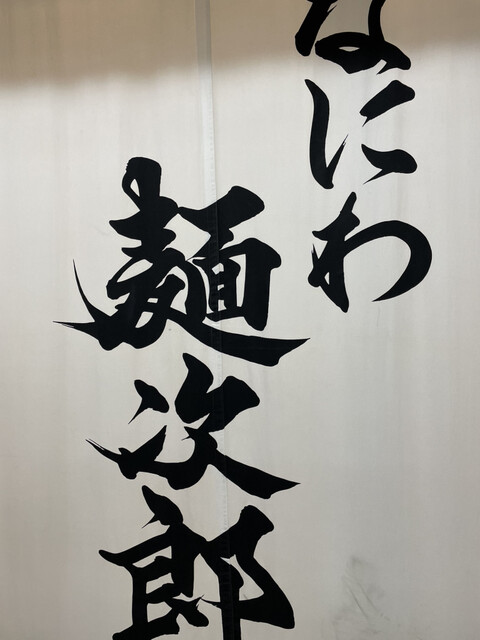 なにわ
麺次郎